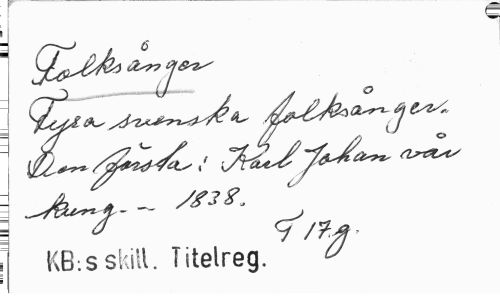 Folksånger
Fyra svenska folksånger.
Den första: Karl Johan vår
kung. – 1838.
T 17.g.
KB:s skill. Titelreg.